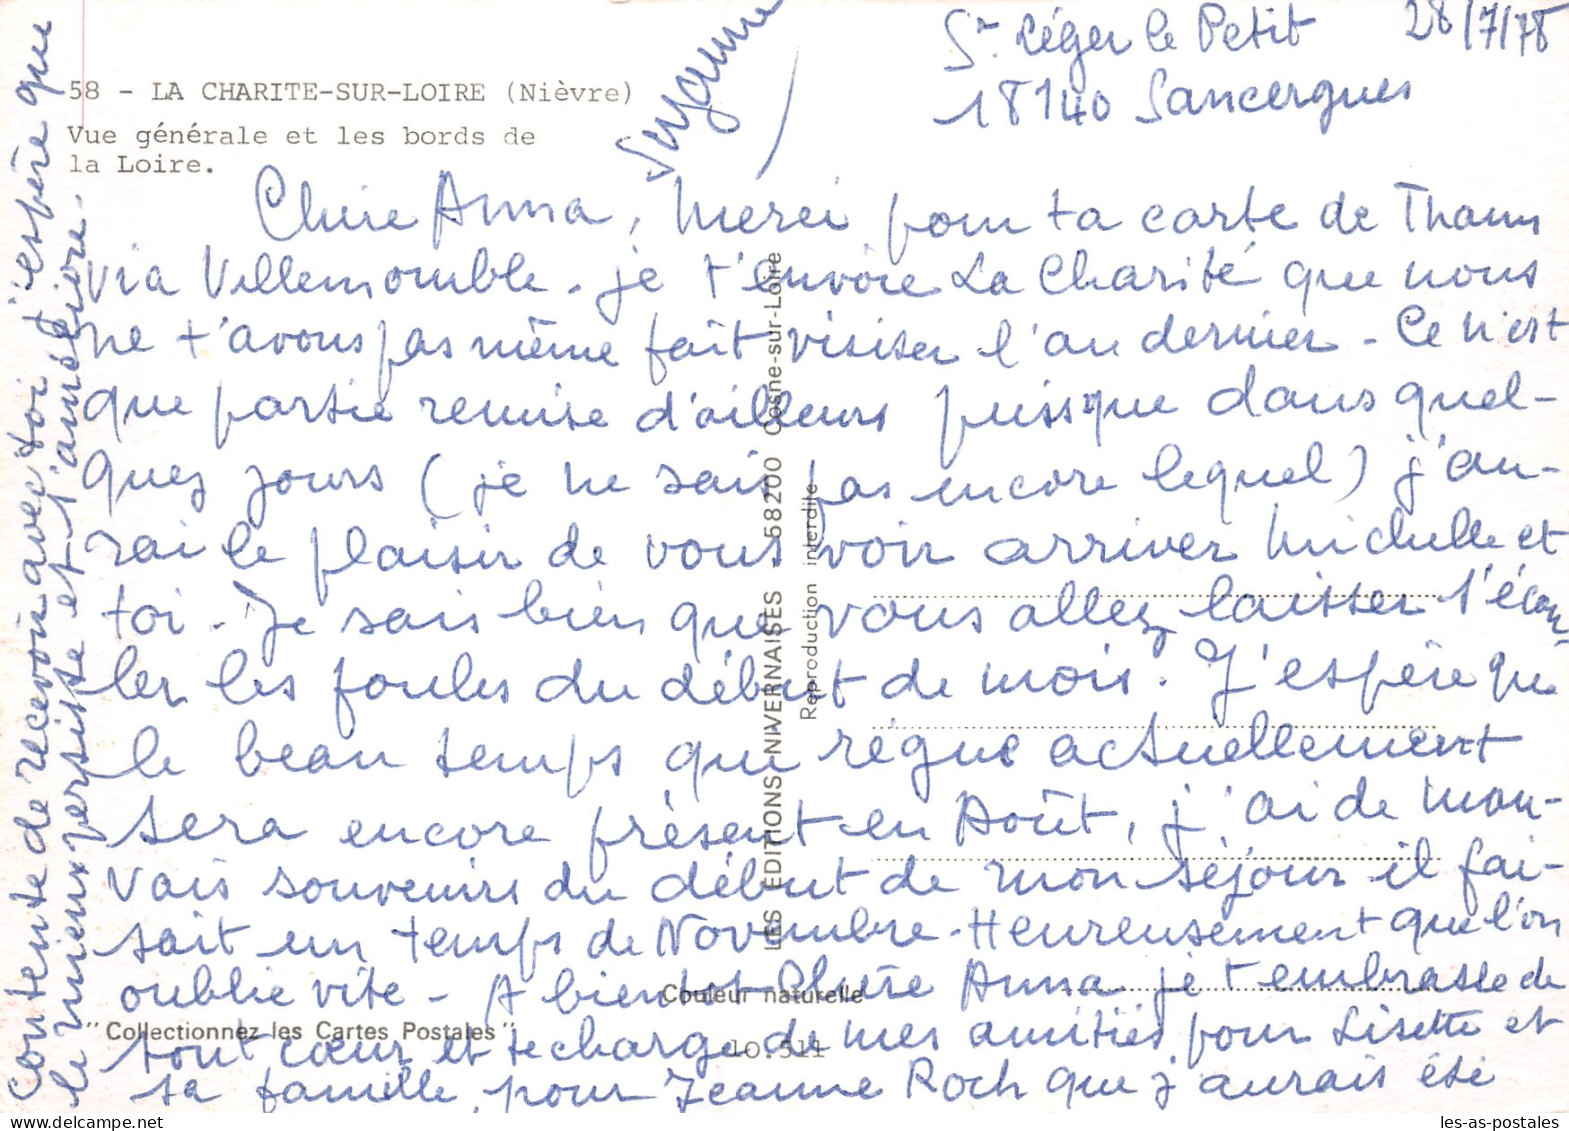 St Léger le Petit 28/7/78
18140 Sancergues
58 - LA CHARITE-SUR-LOIRE (Nièvre)
Vue générale et les bords de
la Loire.
Chère Anna, Merci pour ta carte de Thann
via Villemomble. je t'envoie La Charité que nous
ne t'avons pas même fait visiter l'an dernier - Ce n'est
que partie remise d'ailleurs puisque dans quel-
ques jours (je ne sais pas encore lequel) j'au-
rai le plaisir de vous voir arriver Michelle et
toi. Je sais bien que vous allez laisser s'écou-
ler les foules du début de mois. J'espère que
le beau temps que règne actuellement
sera encore présent en Août, j'ai de mau-
vais souvenirs du début de mon séjour il fai-
sait un temps de Novembre. Heureusement que l'on
oublie vite - A bientôt Chère Anna je t'embrasse de
tout cœur et te charge de mes amitiés pour Lisette et
sa famille, pour Jeanne Roch que j'aurais été
contente de recevoir avec toi j'espère que
le mieux persiste et s'améliore.
Suzanne
LES EDITIONS NIVERNAISES - 58200 Cosne-sur-Loire
Reproduction interdite
Couleur naturelle
"Collectionnez les Cartes Postales"
10.511
les-as-postales
delcampe.net